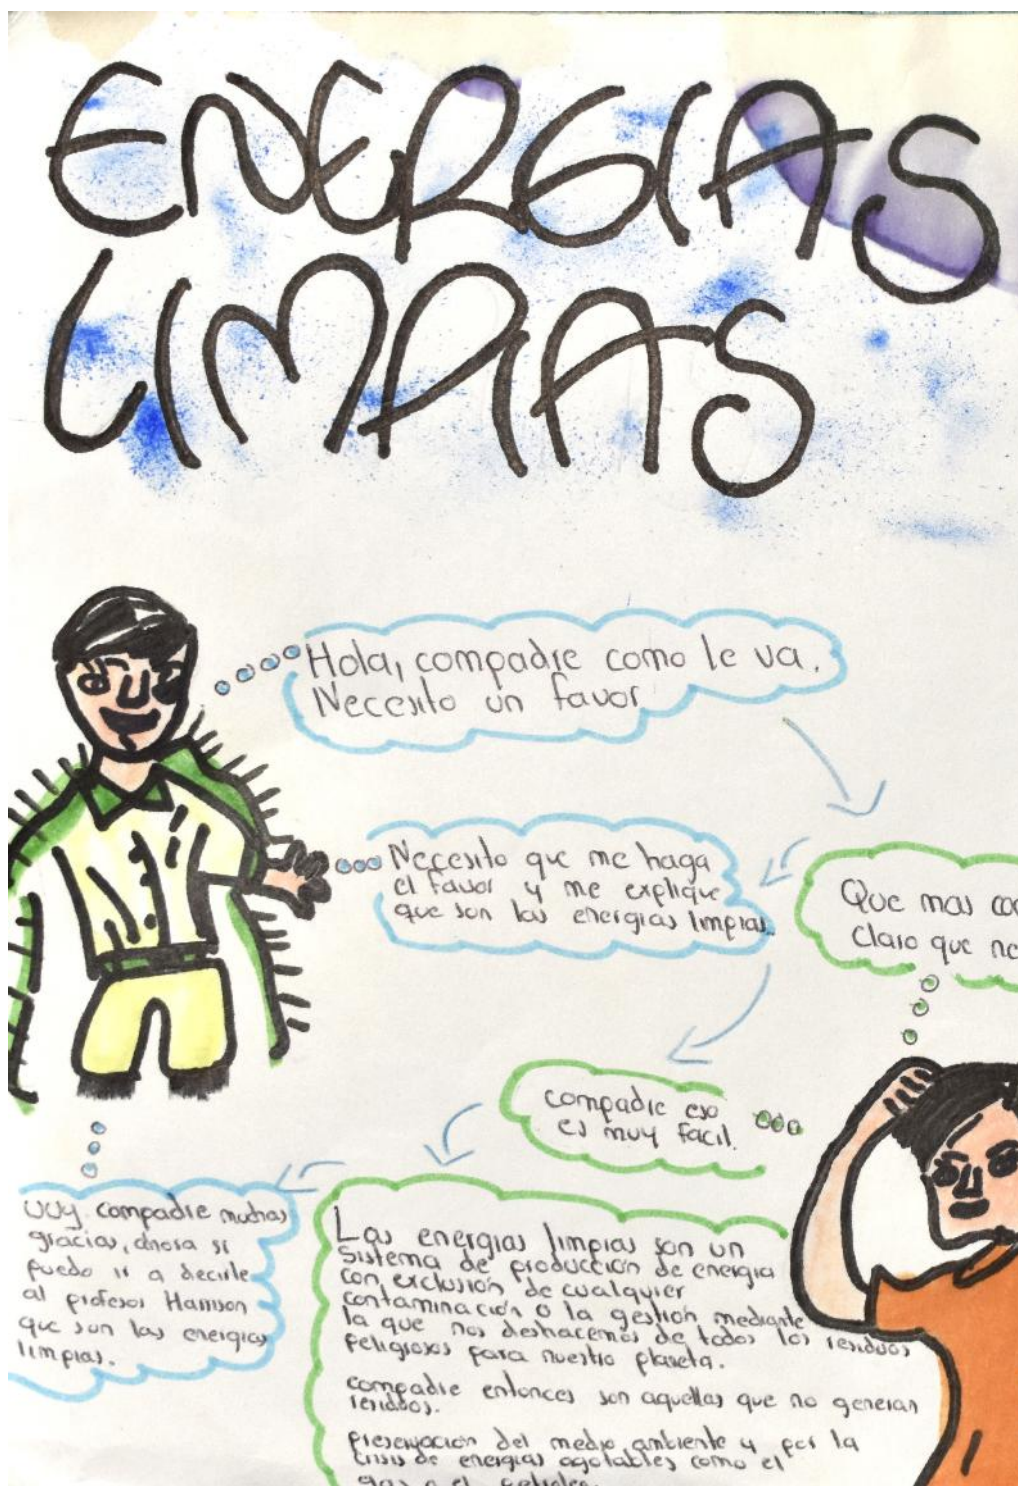 ENERGIAS
LIMPIAS
Hola, compadre como le va.
Necesito un favor
Que mas
Claro que
Necesito que me haga
el favor y me explique
que son las energias limpias.
compadre eso
es muy facil.
Las energias limpias son un
sistema de producción de energia
con exclusión de cualquier
contaminación o la gestión mediante
la que nos deshacemos de todos los residuos
peligrosos para nuestro planeta.
compadre entonces son aquellas que no generan
residuos.
preservación del medio ambiente y por la
crisis de energias agotables como el
gas o el petroleo.
uuy compadre muchas
gracias, ahora si
puedo ir a decirle
al profesor Harrison
que son las energias
limpias.